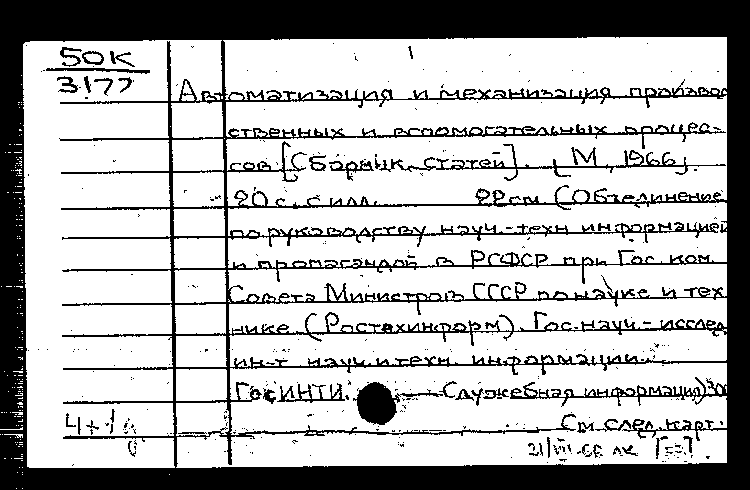 50К
3177
1
Автоматизация и механизация производ
ственных и вспомогательных процес-
сов [Сборник статей]. [М., 1966].
20 с. с илл. 22 см (Объединение
по руководству науч.-техн информацией
и пропагандой в РСФСР при Гос. ком.
Совета Министров СССР по науке и тех
нике (Ростехинформ). Гос. науч.-исслед
ин-т науч. и техн. информации.
ГосИНТИ. Служебная информация)
4+1д.
См. след. карт.
21/VIII-66 лк